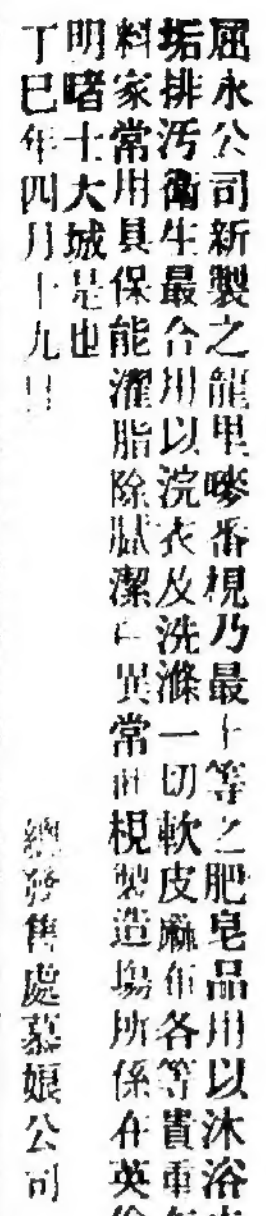 屈永公司新製之龍里嘇番梘乃最上等之肥皂品用以沐浴
垢排污衛生最合用以浣衣及洗滌一切軟皮麻布各等貴重
料家常用具保能濯脂除膩潔白異常此梘製造塲所係在英
明啫士大城是也
丁巳年四月十九日
總發售處慕娘公司